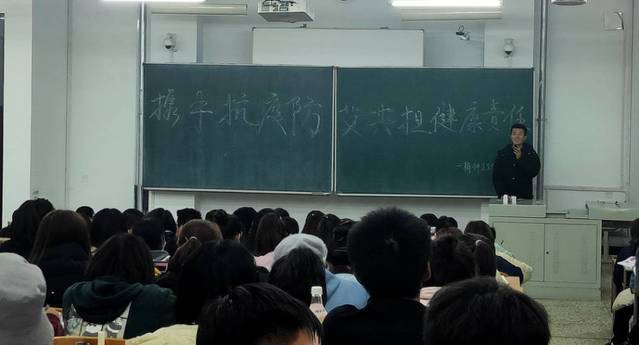 携手抗疫防艾共担健康责任